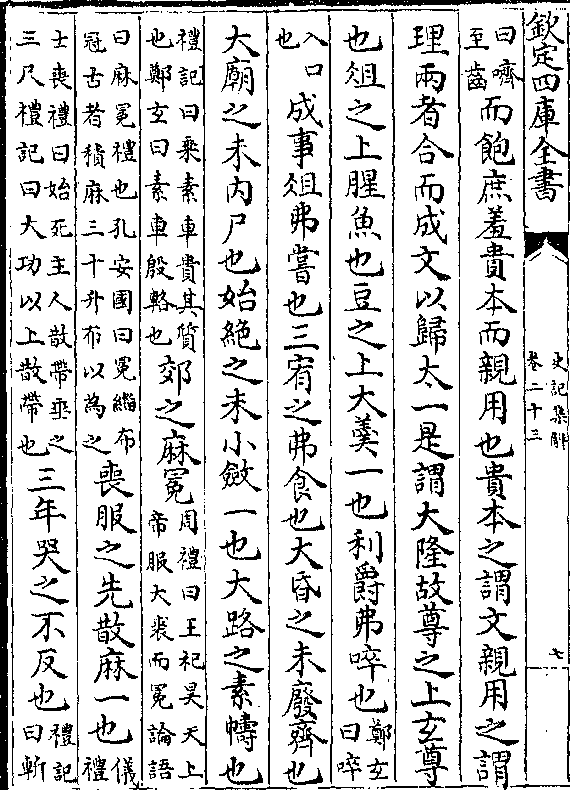 欽定四庫全書
史記集解
卷二十三
七
曰嚌至齒而飽庶羞貴本而親用也貴本之謂文親用之謂
理兩者合而成文以歸太一是謂大隆故尊之上玄尊
也俎之上腥魚也豆之上大羮一也利爵弗啐也鄭玄曰啐
入口也成事俎弗嘗也三宥之弗食也大昏之未廢齊也
大廟之未內尸也始絶之未小斂一也大路之素幬也
禮記曰乗素車貴其質也鄭玄曰素車殷輅也郊之麻冕周禮曰王祀昊天上帝服大裘而冕論語
曰麻冕禮也孔安國曰冕緇布冠古者積麻三十升布以為之喪服之先散麻一也儀禮
士喪禮曰始死主人散帶垂之三尺禮記曰大功以上散帶也三年哭之不反也禮記曰斬